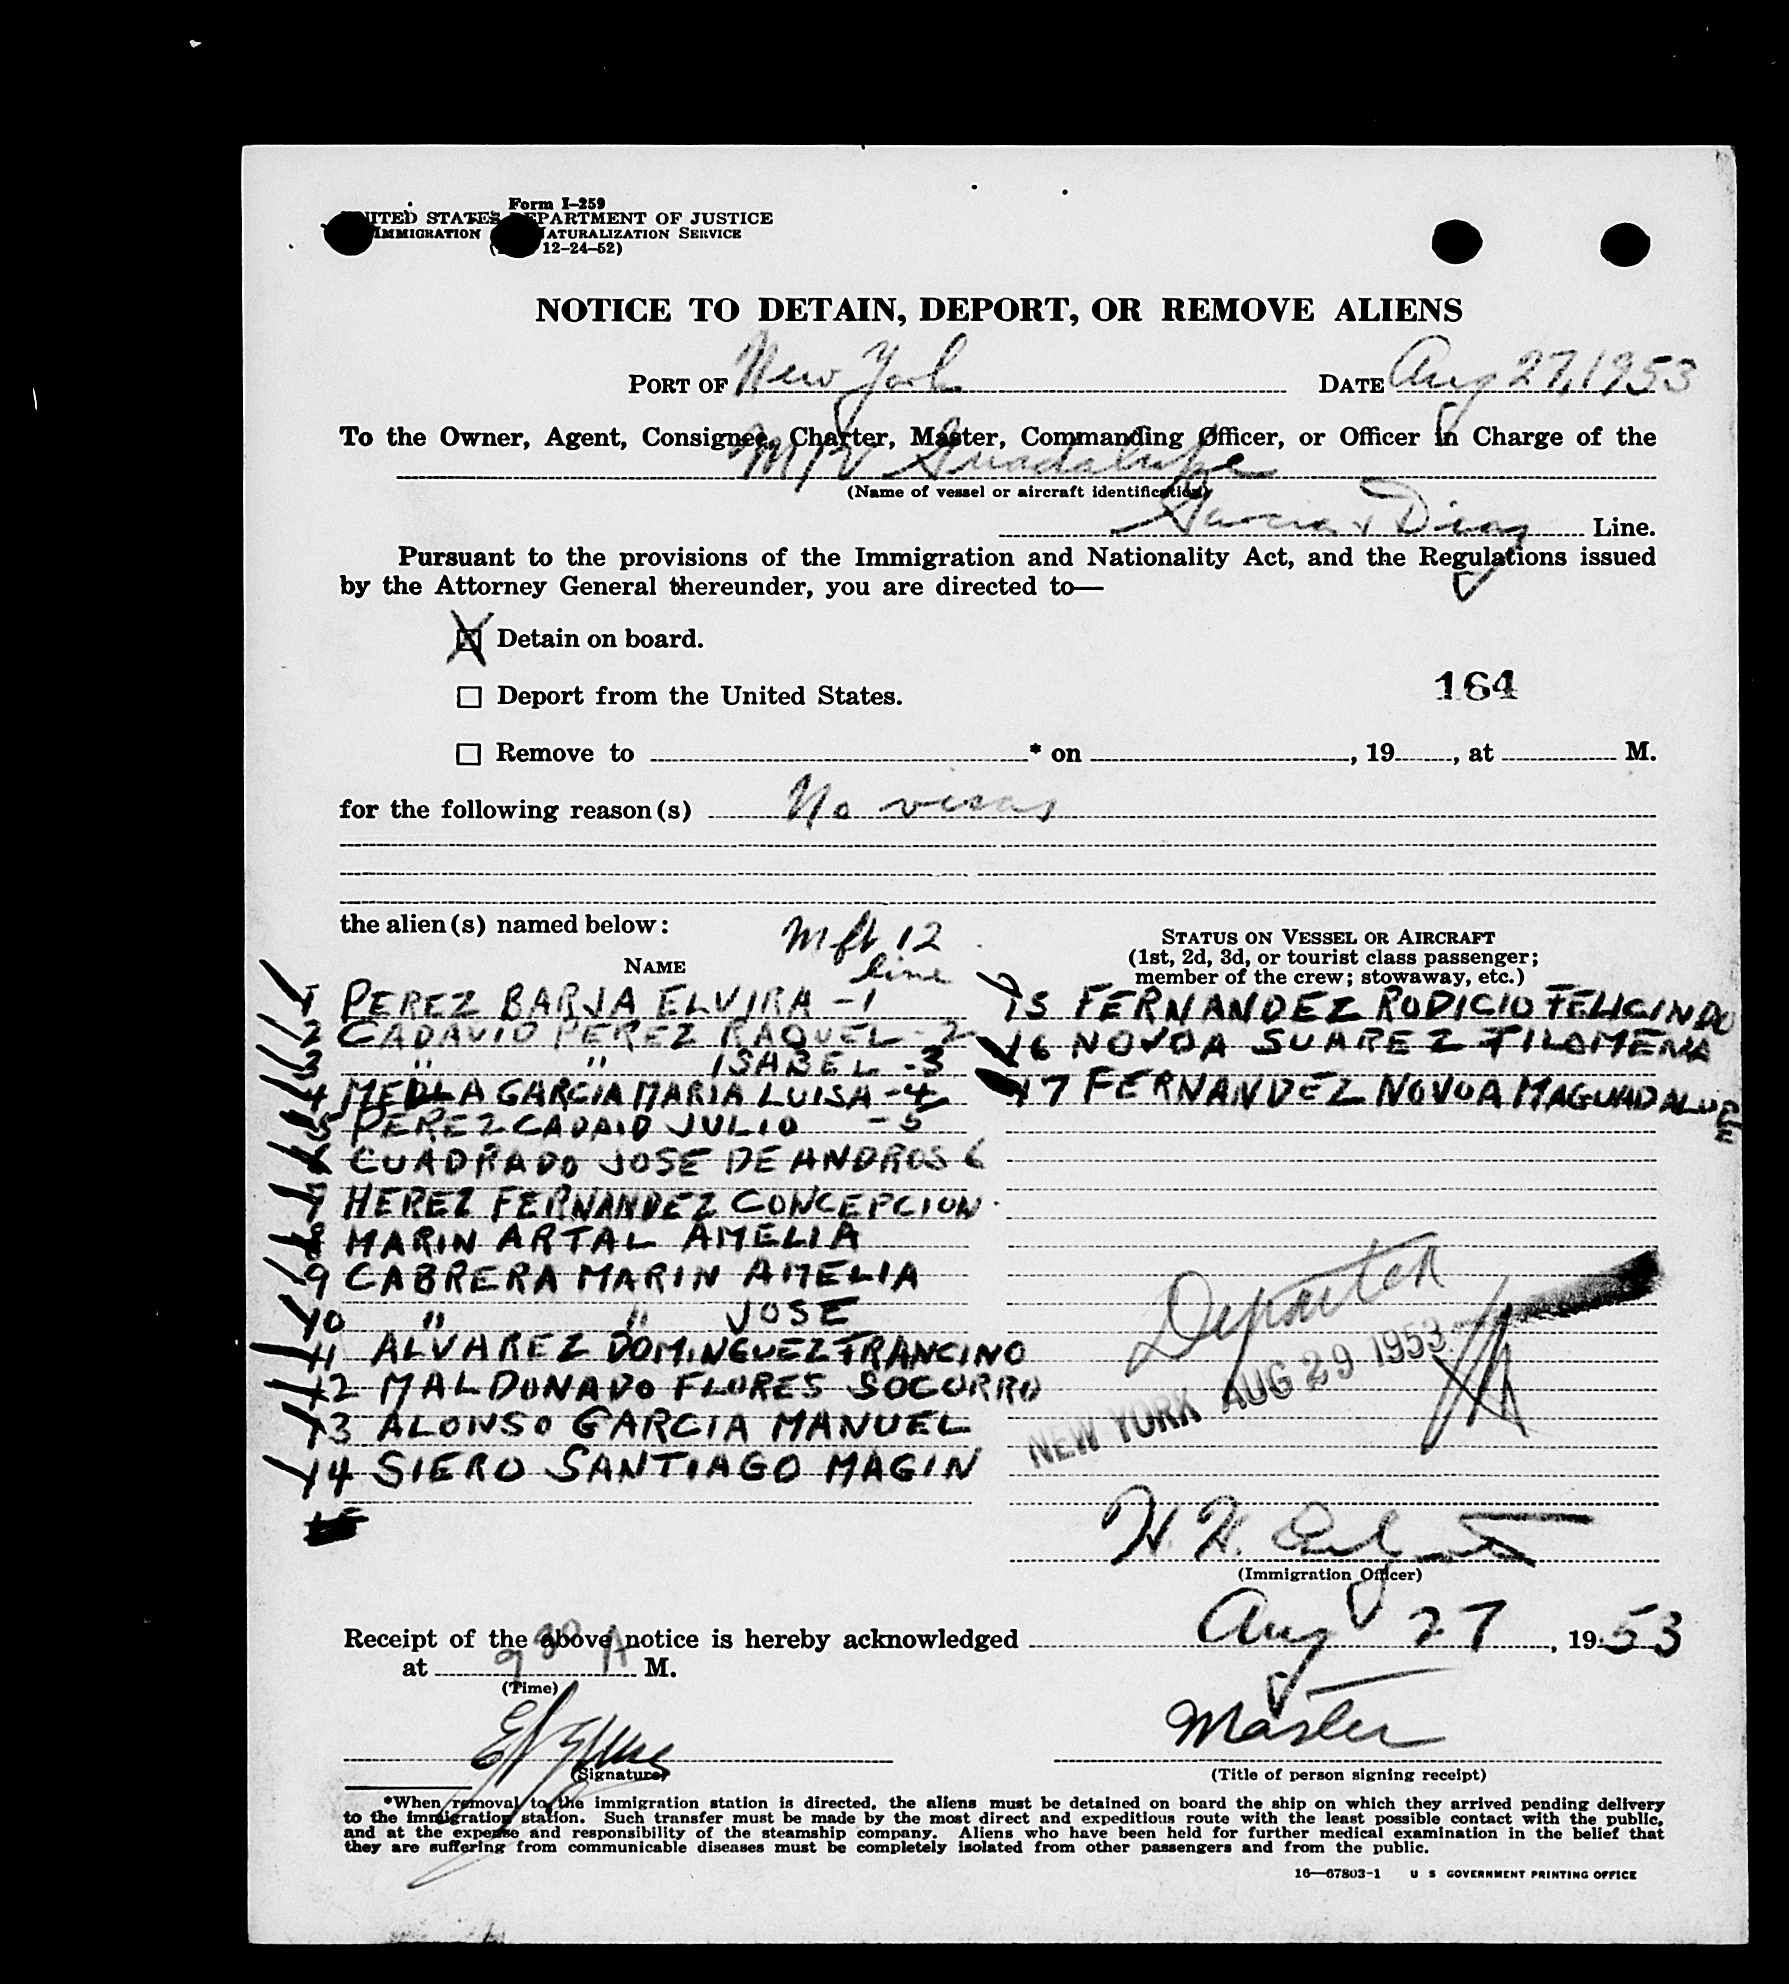 Form I-259
UNITED STATES DEPARTMENT OF JUSTICE
IMMIGRATION NATURALIZATION SERVICE
12-24-52)
NOTICE TO DETAIN, DEPORT, OR REMOVE ALIENS
PORT OF New York DATE Aug 27, 1953
To the Owner, Agent, Consignee, Charter, Master, Commanding Officer, or Officer in Charge of the
M/V Guadalupe
(Name of vessel or aircraft identification)
Garcia & Diaz Line.
Pursuant to the provisions of the Immigration and Nationality Act, and the Regulations issued
by the Attorney General thereunder, you are directed to—
X Detain on board.
☐ Deport from the United States.
164
☐ Remove to * on , 19 , at M.
for the following reason(s) No visas
the alien(s) named below:
Mft 12
line
NAME
STATUS ON VESSEL OR AIRCRAFT
(1st, 2d, 3d, or tourist class passenger;
member of the crew; stowaway, etc.)
1 PEREZ BARJA ELVIRA - 1
2 CADAVID PEREZ RAQUEL - 2
3 " " ISABEL - 3
4 MEDLA GARCIA MARIA LUISA - 4
5 PEREZ CADAID JULIO - 5
6 CUADRADO JOSE DE ANDROS 6
7 HEREZ FERNANDEZ CONCEPCION
8 MARIN ARTAL AMELIA
9 CABRERA MARIN AMELIA
10 " " JOSE
11 ALVAREZ DOMINGUEZ FRANCINO
12 MALDONADO FLORES SOCORRO
13 ALONSO GARCIA MANUEL
14 SIERO SANTIAGO MAGIN
15 FERNANDEZ RODICIO FELICINDO
16 NOVOA SUAREZ FILOMENA
17 FERNANDEZ NOVOA MAGUADALUPE
Departed
NEW YORK AUG 29 1953
H. H.
(Immigration Officer)
Receipt of the above notice is hereby acknowledged Aug 27, 1953
at 9 30 A M.
(Time)
Master
(Signature)
(Title of person signing receipt)
*When removal to the immigration station is directed, the aliens must be detained on board the ship on which they arrived pending delivery
to the immigration station. Such transfer must be made by the most direct and expeditious route with the least possible contact with the public,
and at the expense and responsibility of the steamship company. Aliens who have been held for further medical examination in the belief that
they are suffering from communicable diseases must be completely isolated from other passengers and from the public.
16—67803-1 U S GOVERNMENT PRINTING OFFICE